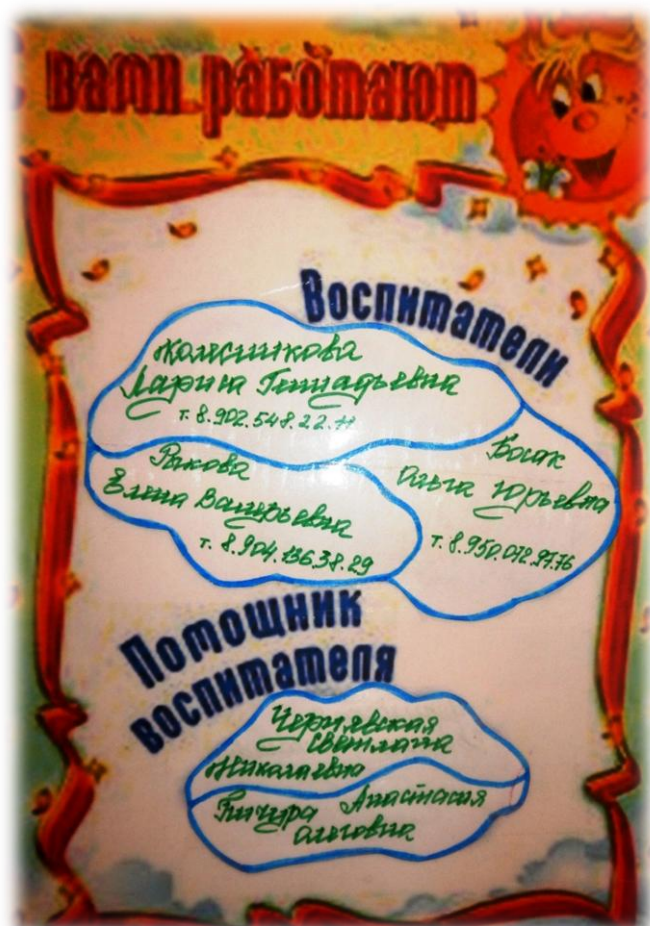 вами работают
Воспитатели
Колесникова
Лариса Геннадьевна
т. 8.902.548.22.11
Рыкова
Елена Валерьевна
т. 8.904.136.38.29
Босак
Ольга Юрьевна
т. 8.950.072.97.76
Помощник
воспитателя
Чернявская
Светлана
Николаевна
Анастасия
Олеговна